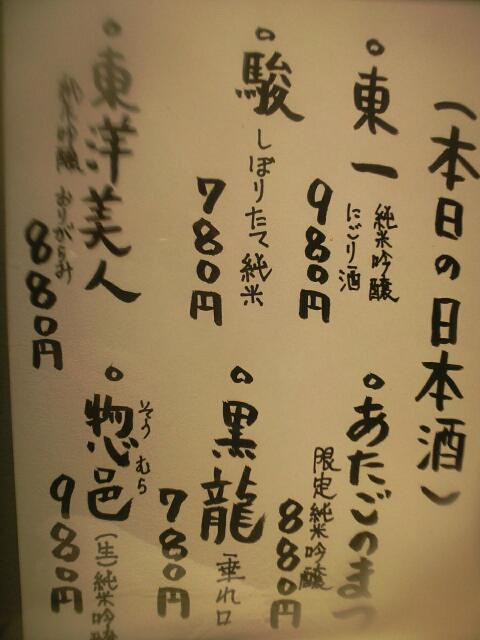 （本日の日本酒）
○東一
純米吟醸
にごり酒
980円
○駿
しぼりたて純米
780円
○東洋美人
純米吟醸 おりがらみ
880円
○あたごのまつ
限定純米吟醸
880円
○黒龍
垂れ口
780円
○惣邑
そうむら
（生）純米吟醸
980円